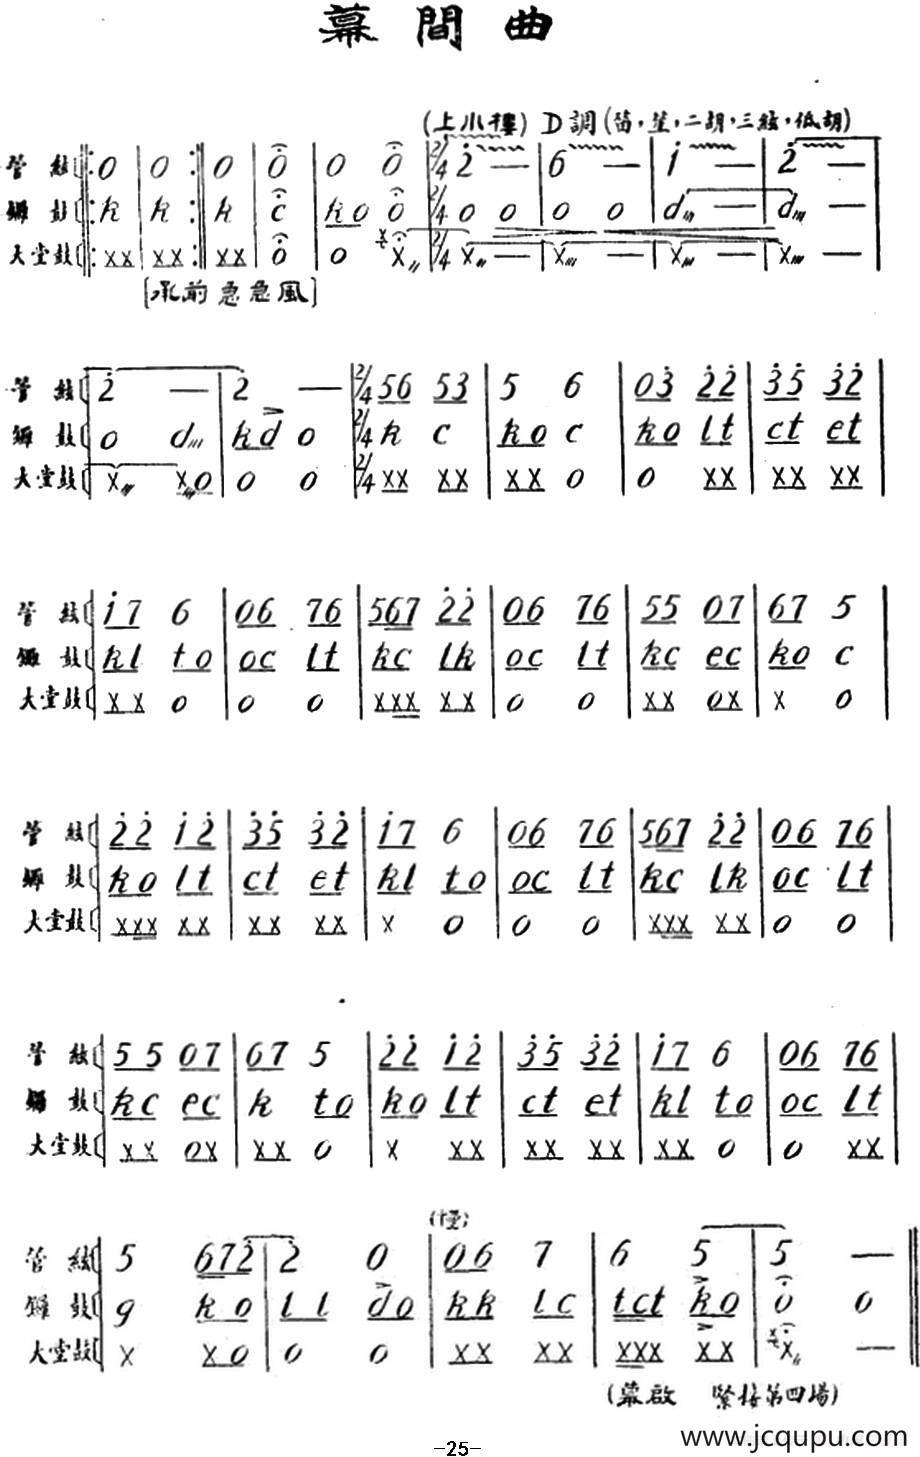 幕間曲
(上小樓) D調(笛,笙,二胡,三絃,低胡)
管絃 0 0 0 0 0 0 2/4 2̇ — 6 — 1̇ — 2̇ —
鑼鼓 k k k c k0 0 2/4 0 0 0 0 d — d —
大堂鼓 xx xx xx 0 0 x 2/4 x — x — x — x —
[承前急急風]
管絃 2̇ — 2 — 2/4 56 53 5 6 03̇ 2̇2̇ 3̇5̇ 3̇2̇
鑼鼓 0 d kd 0 2/4 k c k0 c k0 lt ct et
大堂鼓 x x0 0 0 2/4 xx xx xx 0 0 xx xx xx
管絃 1̇7 6 06 76 567 2̇2̇ 06 76 55 07 67 5
鑼鼓 kl to oc lt kc lk oc lt kc ec ko c
大堂鼓 xx 0 0 0 xxx xx 0 0 xx 0x x 0
管絃 2̇2̇ 1̇2̇ 3̇5̇ 3̇2̇ 1̇7 6 06 76 567 2̇2̇ 06 76
鑼鼓 ko lt ct et kl to oc lt kc lk oc lt
大堂鼓 xxx xx xx xx x 0 0 0 xxx xx 0 0
管絃 55 07 67 5 2̇2̇ 1̇2̇ 3̇5̇ 3̇2̇ 1̇7 6 06 76
鑼鼓 kc ec k to ko lt ct et kl to oc lt
大堂鼓 xx 0x xx 0 x xx xx xx xx 0 0 xx
(慢)
管絃 5 672̇ 2 0 06 7 6 5 5 —
鑼鼓 g ko ll do kk lc tct ko 0 0
大堂鼓 x x0 0 0 xx xx xxx xx x —
(幕啟 緊接第四場)
www.jcqupu.com
-25-